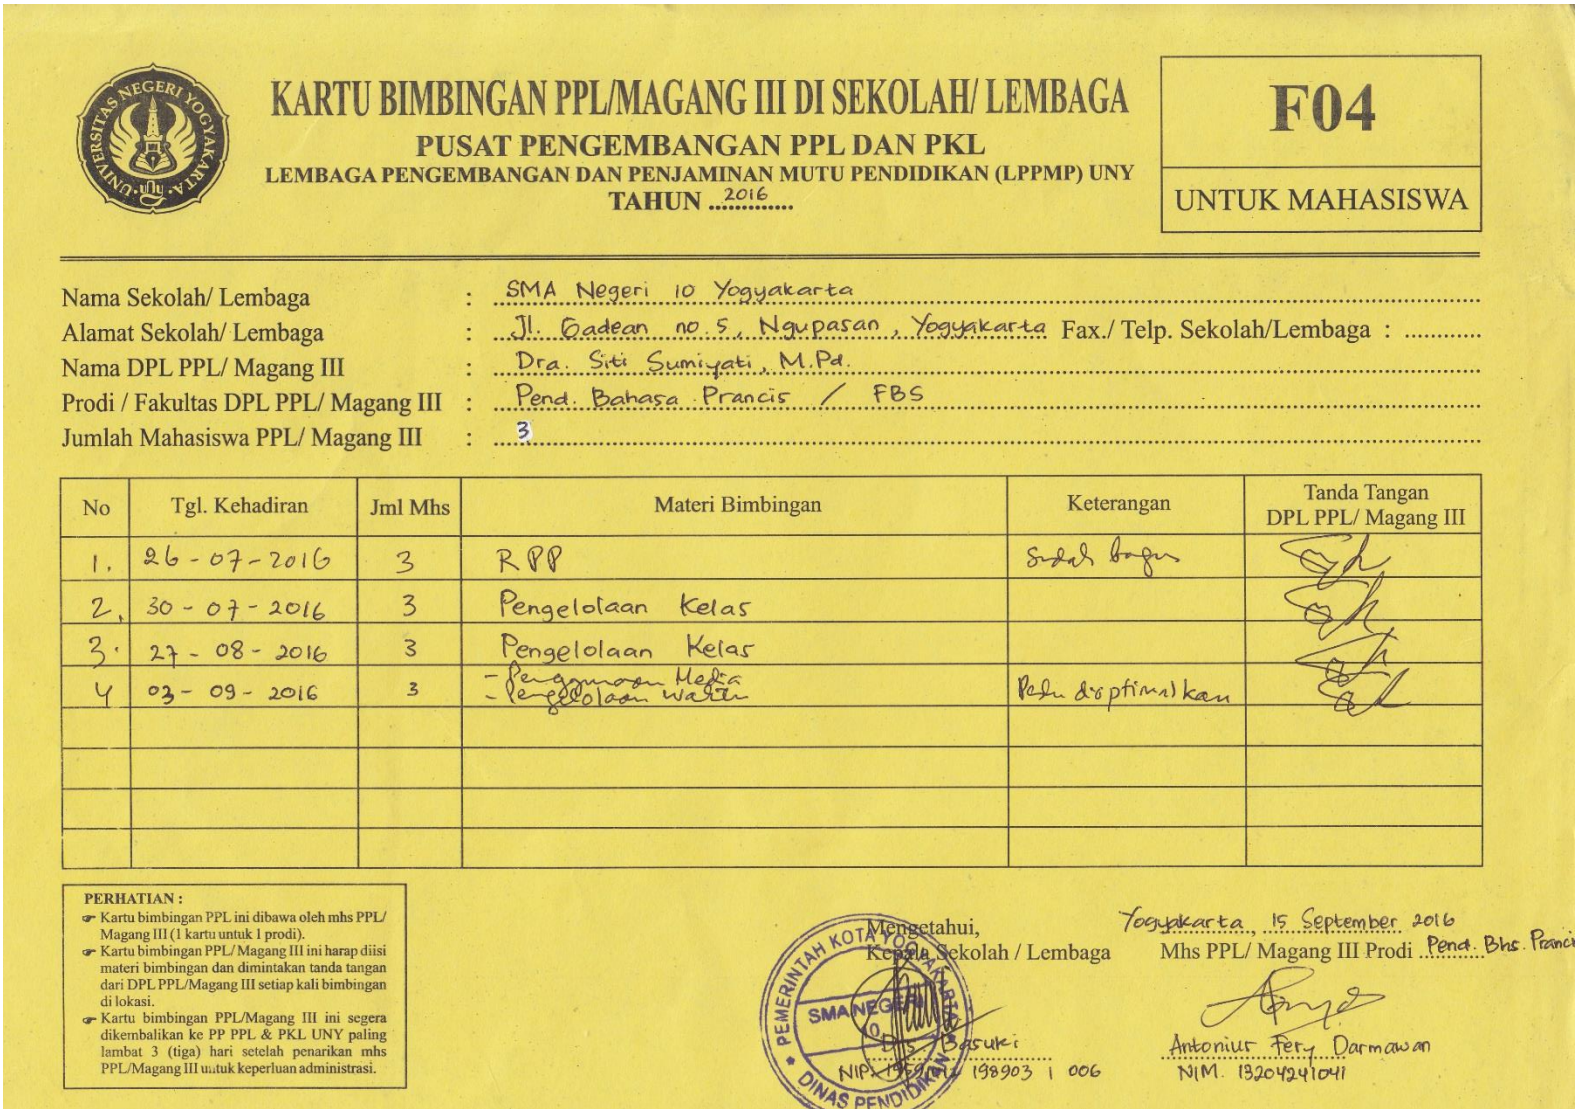 UNIVERSITAS NEGERI YOGYAKARTA
UNY
KARTU BIMBINGAN PPL/MAGANG III DI SEKOLAH/ LEMBAGA
PUSAT PENGEMBANGAN PPL DAN PKL
LEMBAGA PENGEMBANGAN DAN PENJAMINAN MUTU PENDIDIKAN (LPPMP) UNY
TAHUN 2016
F04
UNTUK MAHASISWA
Nama Sekolah/ Lembaga : SMA Negeri 10 Yogyakarta
Alamat Sekolah/ Lembaga : Jl. Gadean no. 5, Ngupasan, Yogyakarta Fax./ Telp. Sekolah/Lembaga : ............
Nama DPL PPL/ Magang III : Dra. Siti Sumiyati, M.Pd.
Prodi / Fakultas DPL PPL/ Magang III : Pend. Bahasa Prancis / FBS
Jumlah Mahasiswa PPL/ Magang III : 3
No Tgl. Kehadiran Jml Mhs Materi Bimbingan Keterangan Tanda Tangan
DPL PPL/ Magang III
1. 26-07-2016 3 RPP Sudah bagus
2. 30-07-2016 3 Pengelolaan Kelas
3. 27-08-2016 3 Pengelolaan Kelas
- Penggunaan Media
4 03-09-2016 3 - Pengelolaan waktu Perlu dioptimalkan
PERHATIAN :
☞ Kartu bimbingan PPL ini dibawa oleh mhs PPL/
Magang III (1 kartu untuk 1 prodi).
☞ Kartu bimbingan PPL/ Magang III ini harap diisi
materi bimbingan dan dimintakan tanda tangan
dari DPL PPL/Magang III setiap kali bimbingan
di lokasi.
☞ Kartu bimbingan PPL/Magang III ini segera
dikembalikan ke PP PPL & PKL UNY paling
lambat 3 (tiga) hari setelah penarikan mhs
PPL/Magang III untuk keperluan administrasi.
Mengetahui,
Kepala Sekolah / Lembaga
PEMERINTAH KOTA YOGYAKARTA
SMA NEGERI
10
DINAS PENDIDIKAN
Drs. Basuki
NIP. 198903 1 006
Yogyakarta, 15 September 2016
Mhs PPL/ Magang III Prodi Pend. Bhs. Prancis
Antonius Fery Darmawan
NIM. 13204241041